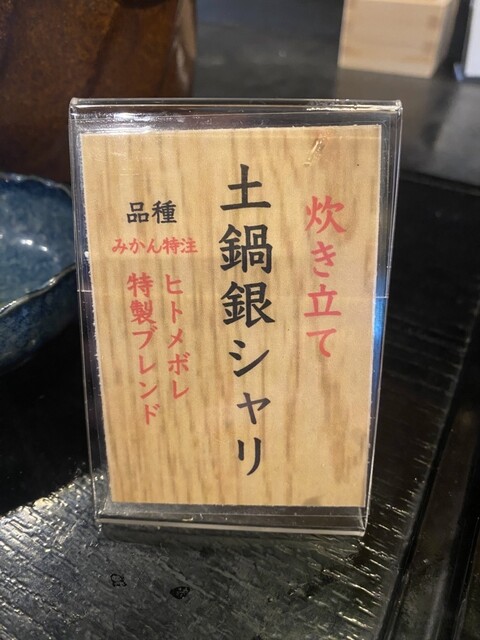 炊き立て
土鍋銀シャリ
品種
みかん特注
ヒトメボレ
特製ブレンド